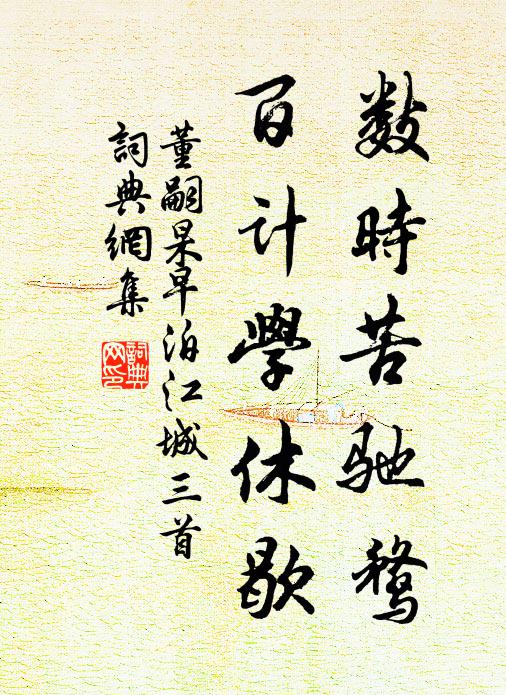 数時苦馳鶩
百计學休歇
董嗣杲早泊江城三首
詞典網集
詞典网印